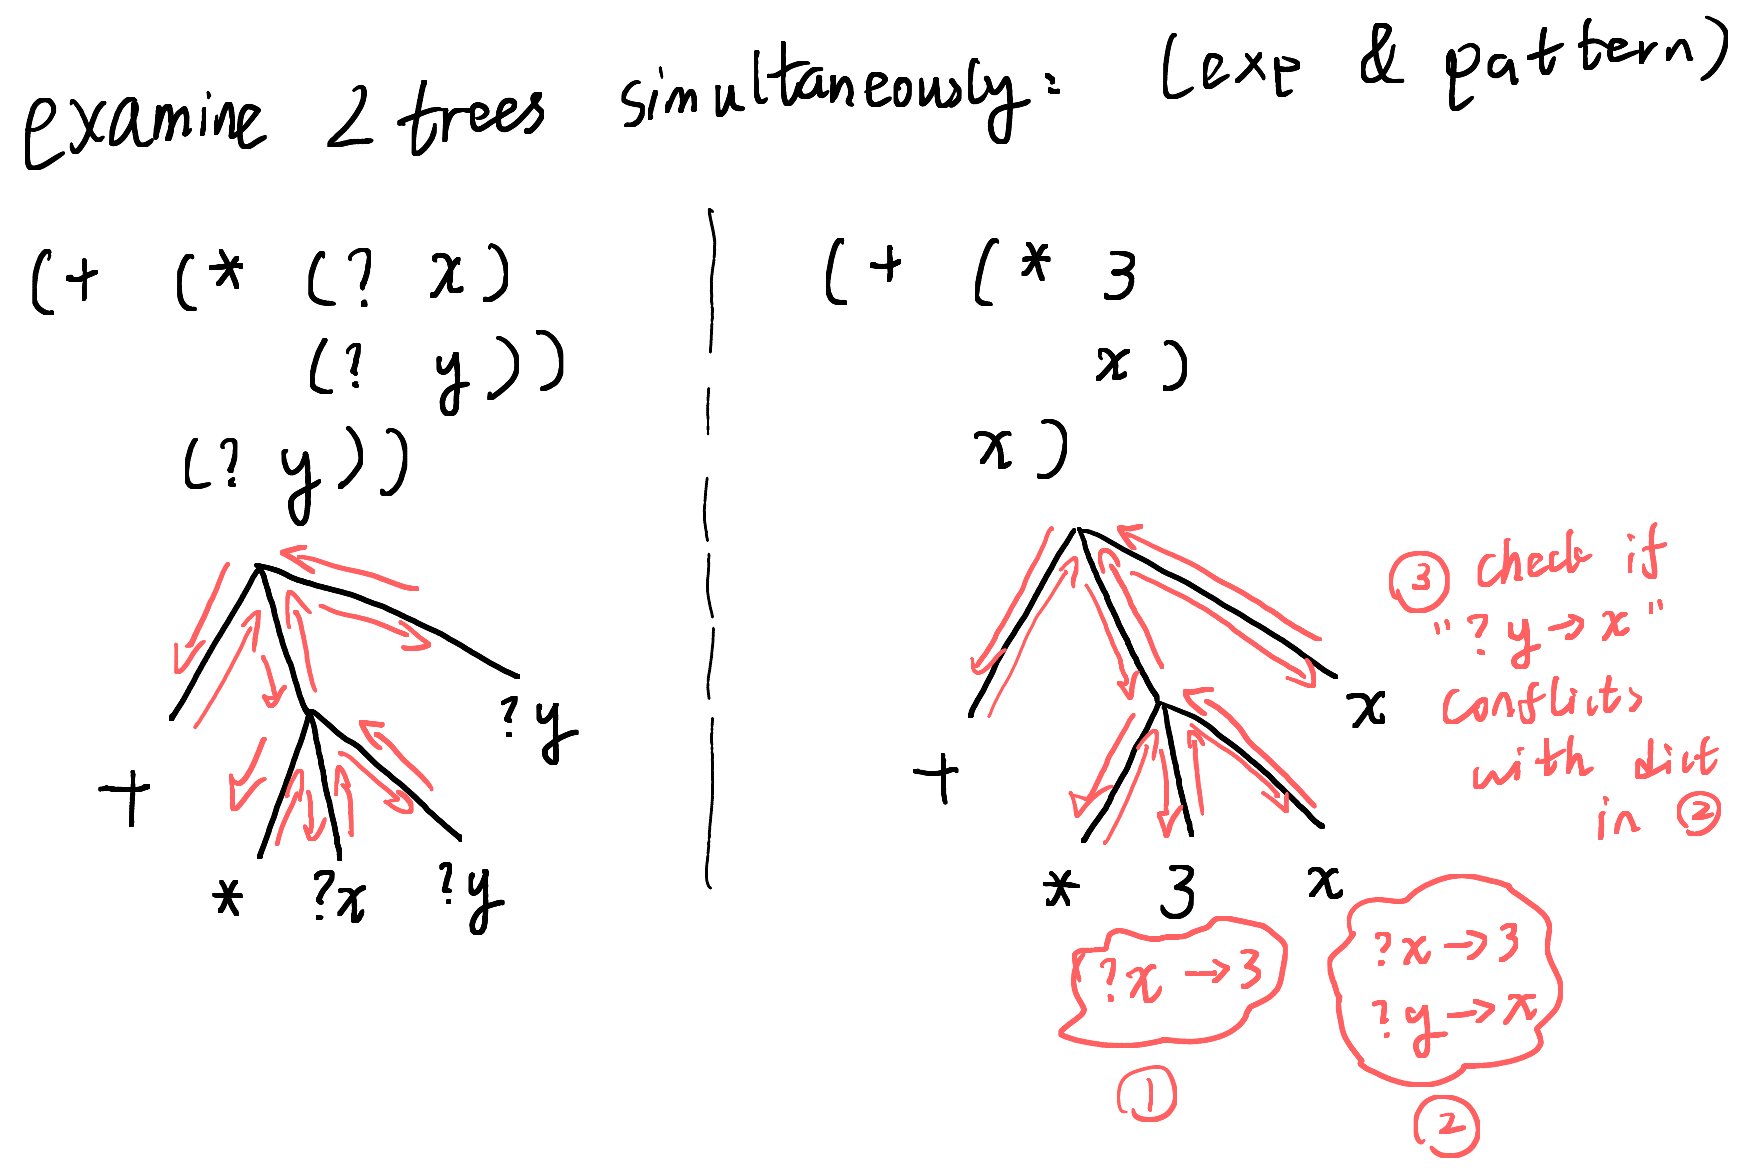 examine 2 trees simultaneously: (exp & pattern)
(+ (* (? x)
(? y))
(? y))
(+ (* 3
x)
x)
+
* ?x ?y
?y
+
* 3 x
x
?x → 3
①
?x → 3
?y → x
②
③ check if
"?y → x"
conflicts
with dict
in ②